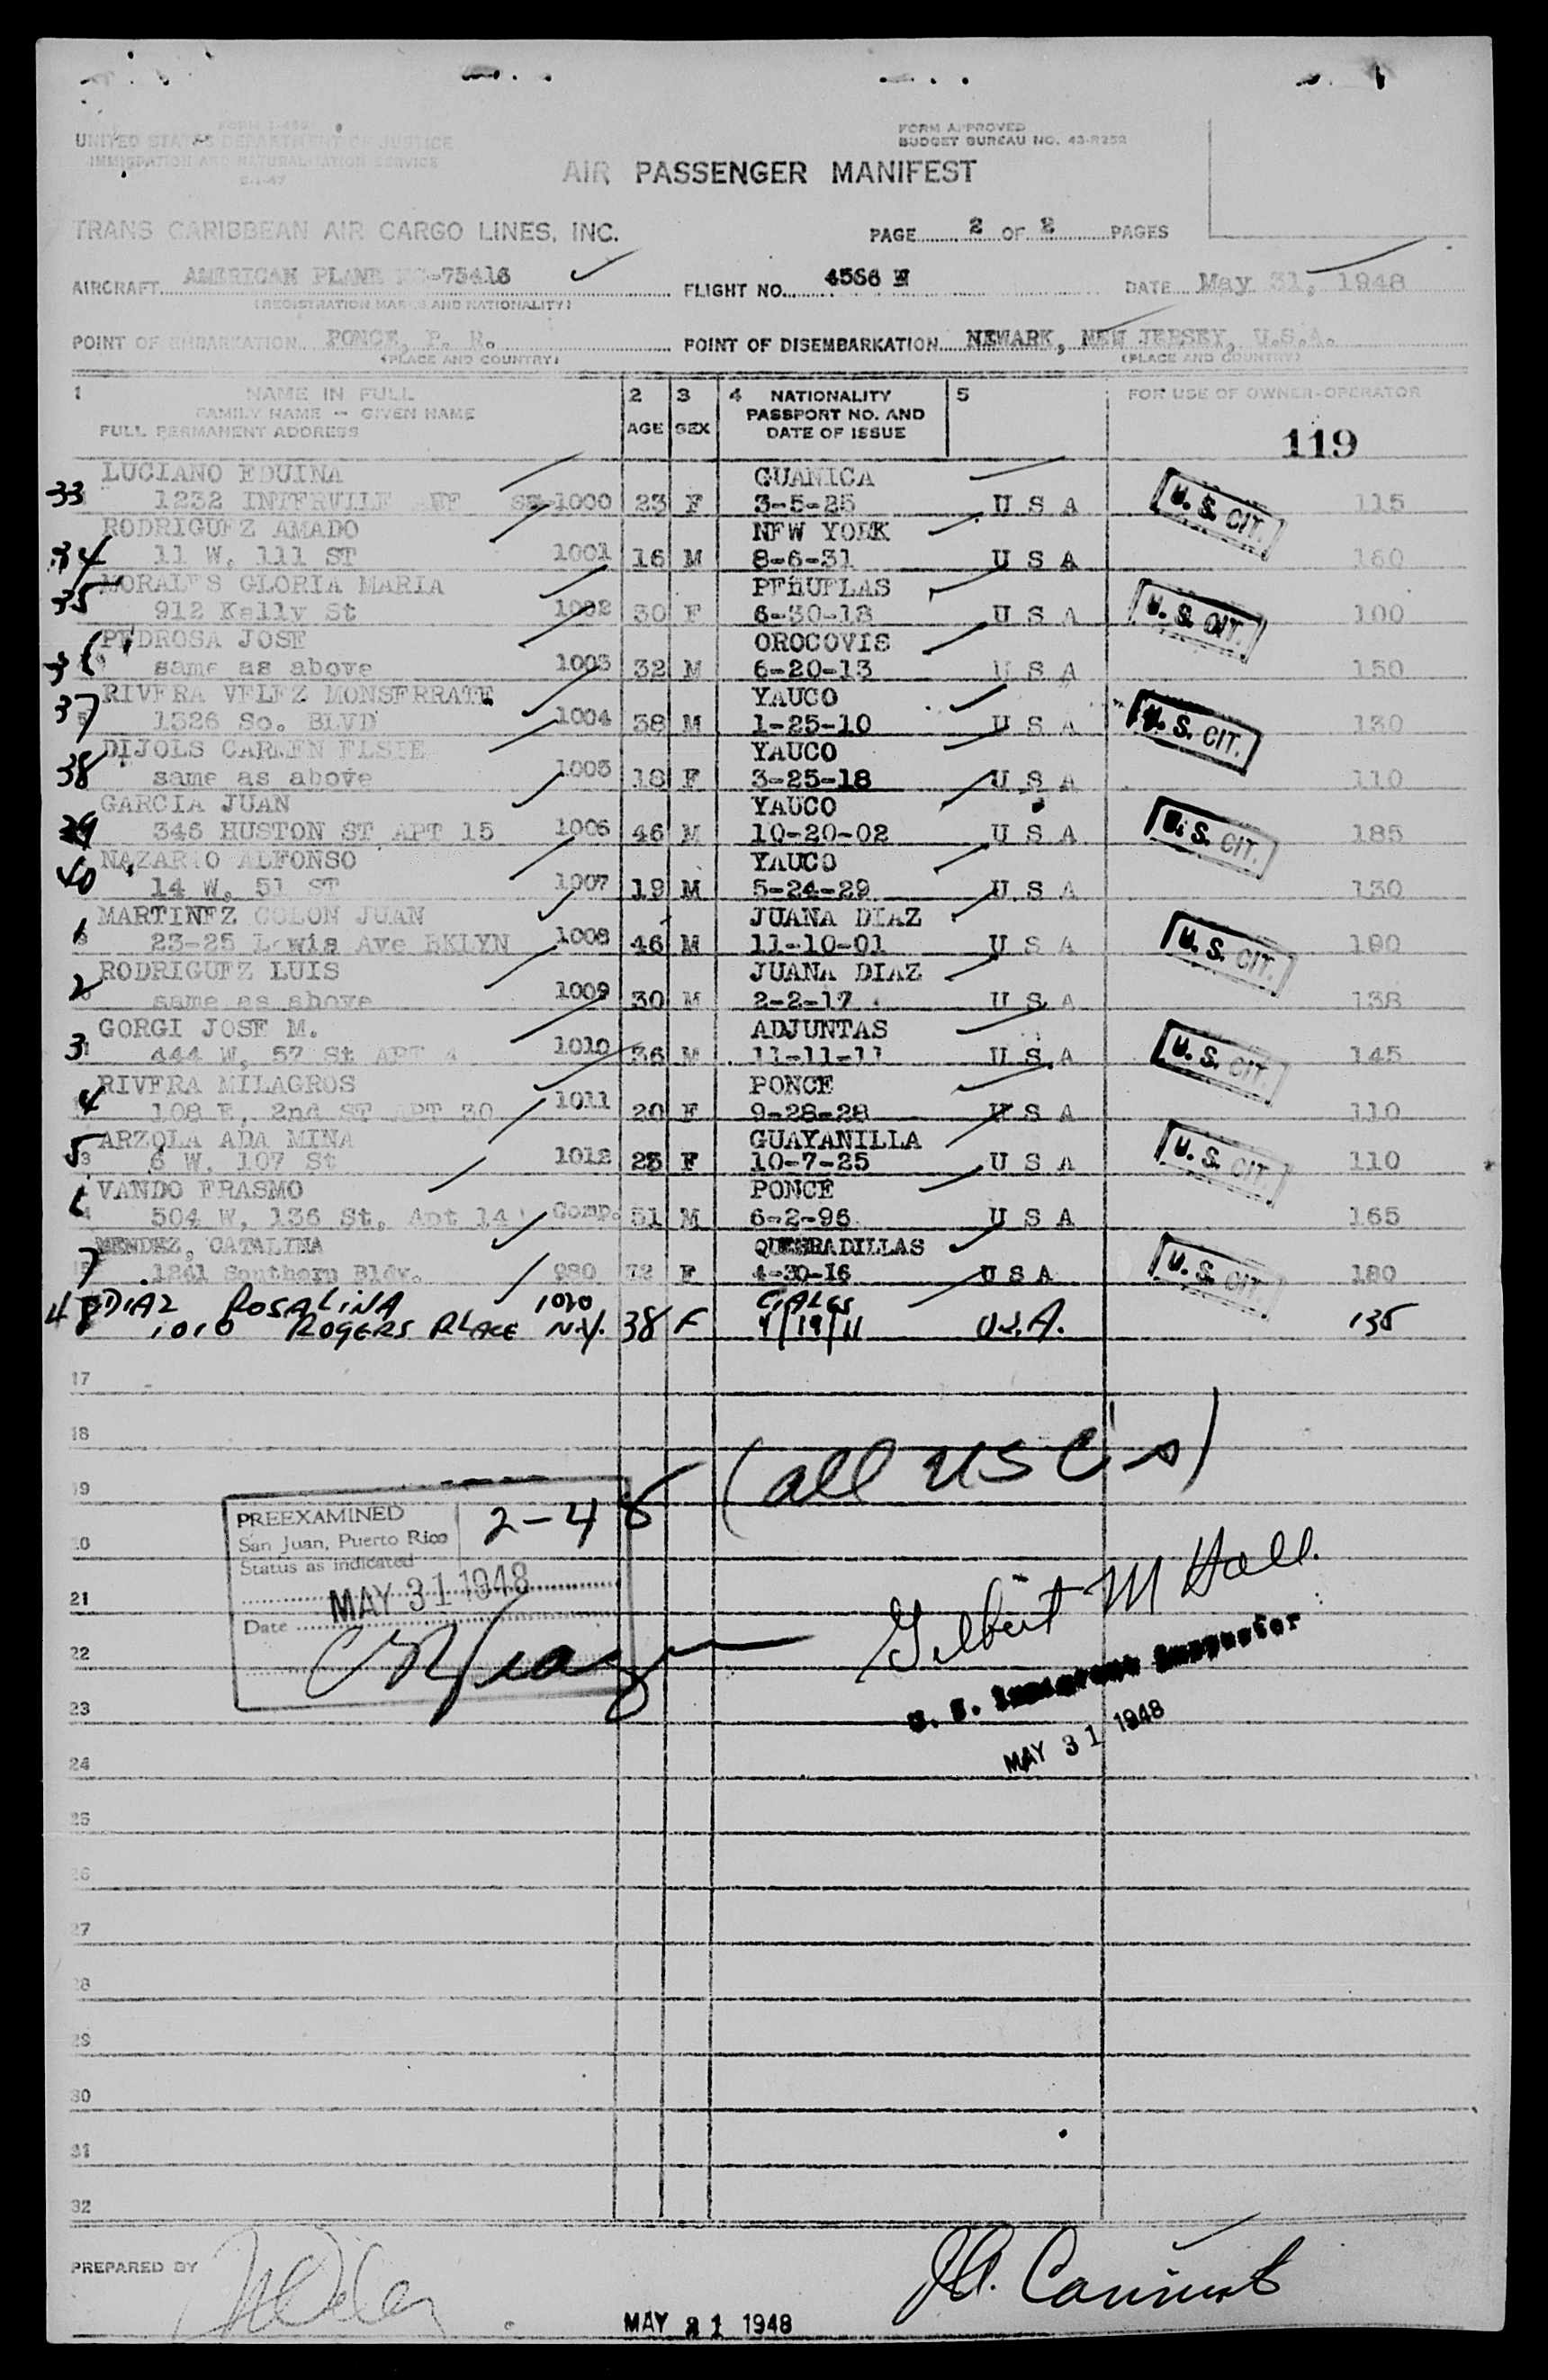 FORM I-466
UNITED STATES DEPARTMENT OF JUSTICE
IMMIGRATION AND NATURALIZATION SERVICE
FORM APPROVED
BUDGET BUREAU NO. 43-R252
AIR PASSENGER MANIFEST
TRANS CARIBBEAN AIR CARGO LINES, INC.
PAGE 2 OF 2 PAGES
AIRCRAFT AMERICAN PLANE NC-75416
FLIGHT NO. 4566 W
DATE May 31, 1948
(REGISTRATION MARKS AND NATIONALITY)
POINT OF EMBARKATION PONCE, P. R.
POINT OF DISEMBARKATION NEWARK, NEW JERSEY, U.S.A.
(PLACE AND COUNTRY) (PLACE AND COUNTRY)
1 NAME IN FULL
FAMILY NAME — GIVEN NAME
FULL PERMANENT ADDRESS
2 AGE
3 SEX
4 NATIONALITY
PASSPORT NO. AND
DATE OF ISSUE
5
FOR USE OF OWNER-OPERATOR
119
LUCIANO EDUINA GUANICA
33 1232 AVE 1000 23 F 3-5-25 U S A U. S. CIT. 115
RODRIGUEZ AMADO NEW YORK
34 11 W, 111 ST 1001 16 M 8-6-31 U S A 160
MORALES GLORIA MARIA PEÑUELAS
35 912 Kelly St 1002 30 F 6-30-18 U S A U. S. CIT. 100
PEDROSA JOSE OROCOVIS
36 same as above 1003 32 M 6-20-13 U S A 150
RIVERA VELEZ MONSERRATE YAUCO
37 1326 So. BLVD 1004 38 M 1-25-10 U S A U. S. CIT. 130
DIJOLS CARMEN ELSIE YAUCO
38 same as above 1005 18 F 3-25-18 U S A 110
GARCIA JUAN YAUCO
39 346 HUSTON ST APT 15 1006 46 M 10-20-02 U S A U. S. CIT. 185
NAZARIO ALFONSO YAUCO
40 14 W, 51 ST 1007 19 M 5-24-29 U S A 130
MARTINEZ COLON JUAN JUANA DIAZ
1 23-25 Lewis Ave BKLYN 1008 46 M 11-10-01 U S A U. S. CIT. 190
RODRIGUEZ LUIS JUANA DIAZ
2 same as above 1009 30 M 2-2-17 U S A 138
GORGI JOSE M. ADJUNTAS
3 444 W, 57 St APT 4 1010 36 M 11-11-11 U S A U. S. CIT. 145
RIVERA MILAGROS PONCE
4 108 E, 2nd ST APT 30 1011 20 F 9-28-28 U S A 110
ARZOLA ADA MINA GUAYANILLA
5 6 W, 107 St 1012 23 F 10-7-25 U S A U. S. CIT. 110
VANDO ERASMO PONCE
6 504 W, 136 St, Apt 14 Comp. 51 M 6-2-96 U S A 165
MENDEZ, CATALINA QUEBRADILLAS
7 1241 Southern Bldv. 980 F 4-30-16 U S A U. S. CIT. 180
48 DIAZ ROSALINA 1020 CIALES
1010 ROGERS PLACE N.Y. 38 F 9/19/11 U.S.A. 135
17
18
(all US C's)
19
PREEXAMINED
San Juan, Puerto Rico 2-48
20
Status as indicated
MAY 31 1948
21
Date
Gilbert M Hall.
22
U. S. Immigrant Inspector
23
MAY 31 1948
24
25
26
27
28
29
30
31
32
PREPARED BY
MAY 31 1948